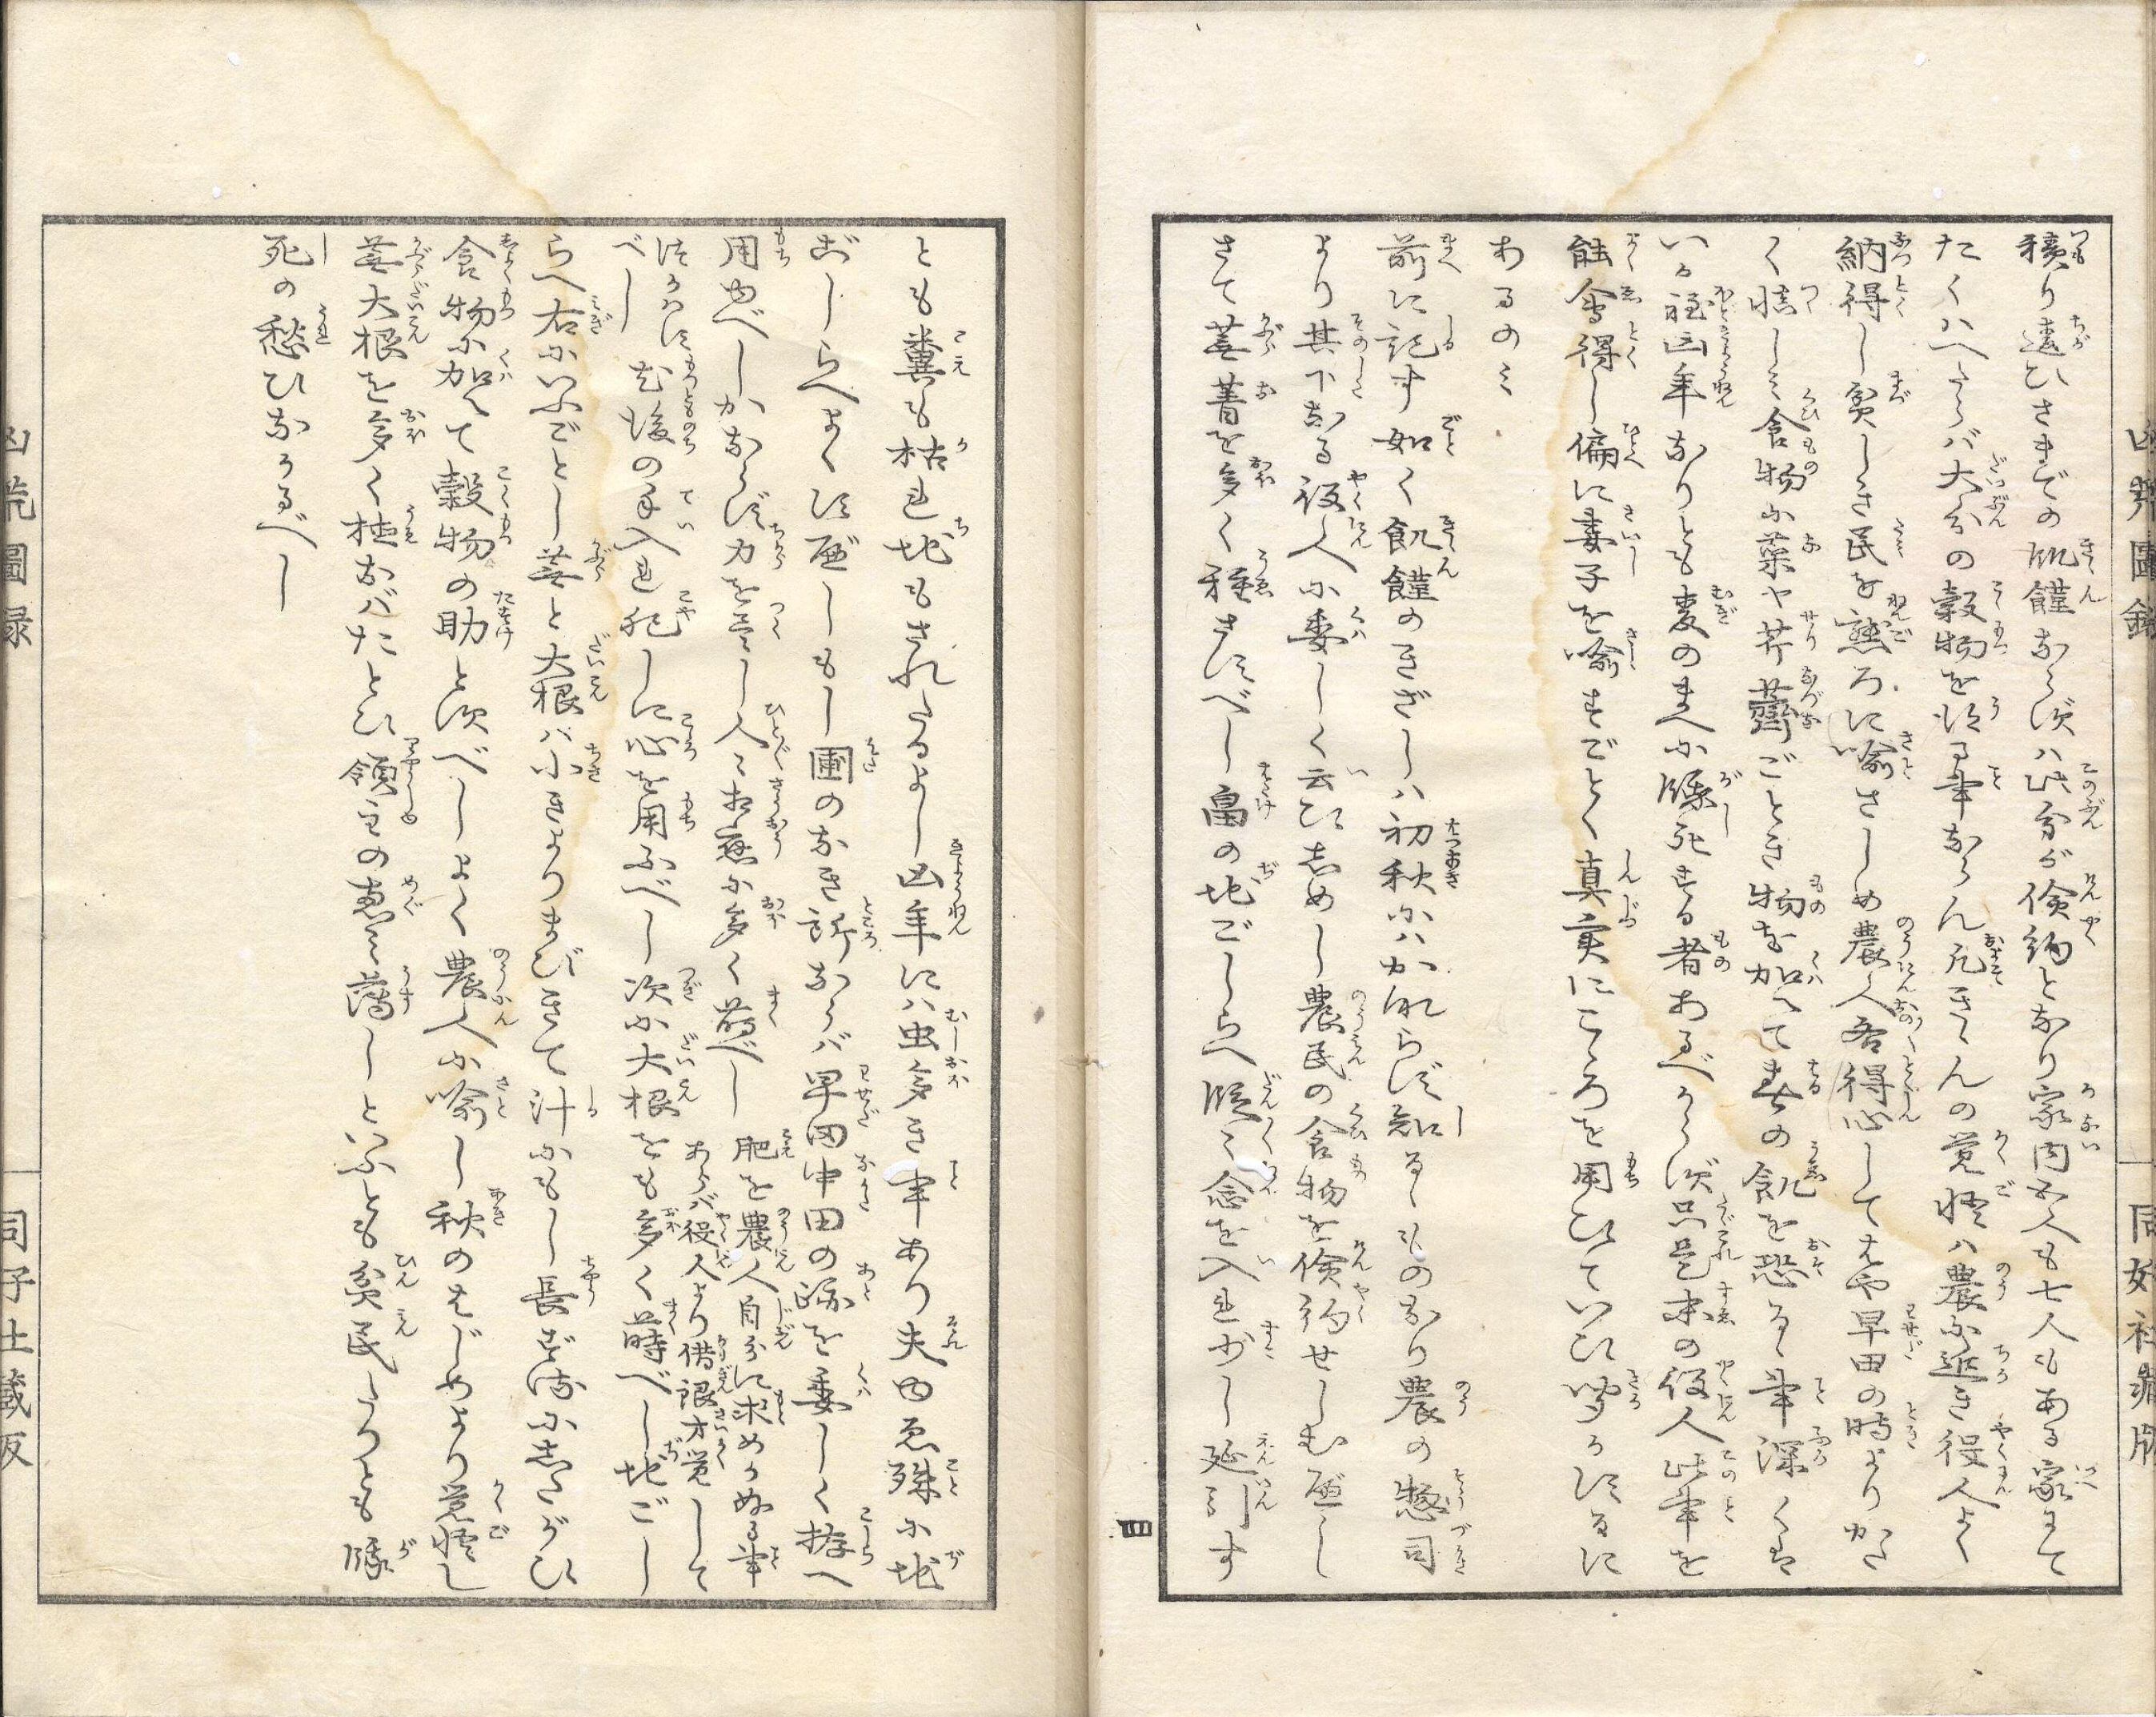 積り違ひさまでの飢饉ならずハ此分が倹約となり家内五人も七人もある家にて
たくハへたらバ大分の穀物を得る事ならん凡きゝんの覚悟ハ農に近き役人よく
納得し貧しき民を懇ろに喩さしめ農人各得心してはや早田の時よりかた
く慎しミ食物に菜や芹薺ごとき物を加へて春の飢を恐るゝ事深くば
いか程凶年なりとも麦のまへに餓死する者あるべからず只是末の役人此事を
能会得し偏に妻子を喩すごとく真実にこゝろを用ひていひ聞かするに
あるのミ
前に記す如く飢饉のきざしハ初秋にハかならず知るゝものなり農の惣司
より其下なる役人に委しく云ひしめし農民の食物を倹約せしむべし
さて蕪菁を多く種さすべし畠の地ごしらへ段々念を入れ少し延引す
とも糞も枯れ地もされたるよし凶年にハ虫多き事あり夫ゆゑ殊に地
ごしらへよくすべしもし圃のなき所ならバ早田中田の跡を委しく拵へ
用ゆべしかならず力を尽し人々相応に多く蒔べし
肥を農人自分に求めかぬる事
あらバ役人より借銀才覚して
つかはす
べし
尤後の手入れ肥しに心を用ふべし次に大根をも多く蒔べし地ごし
らへ右にいふごとし蕪と大根ハ小きよりまびきて汁にもし長ずるにしたがひ
食物に加へて穀物の助とすべしよく農人に喩し秋のはじめより覚悟し
蕪大根を多く植なバたとひ領主の恵ミ薄しといふとも貧民たりとも餓
死の愁ひなかるべし
四
凶荒圖録
同好社蔵版